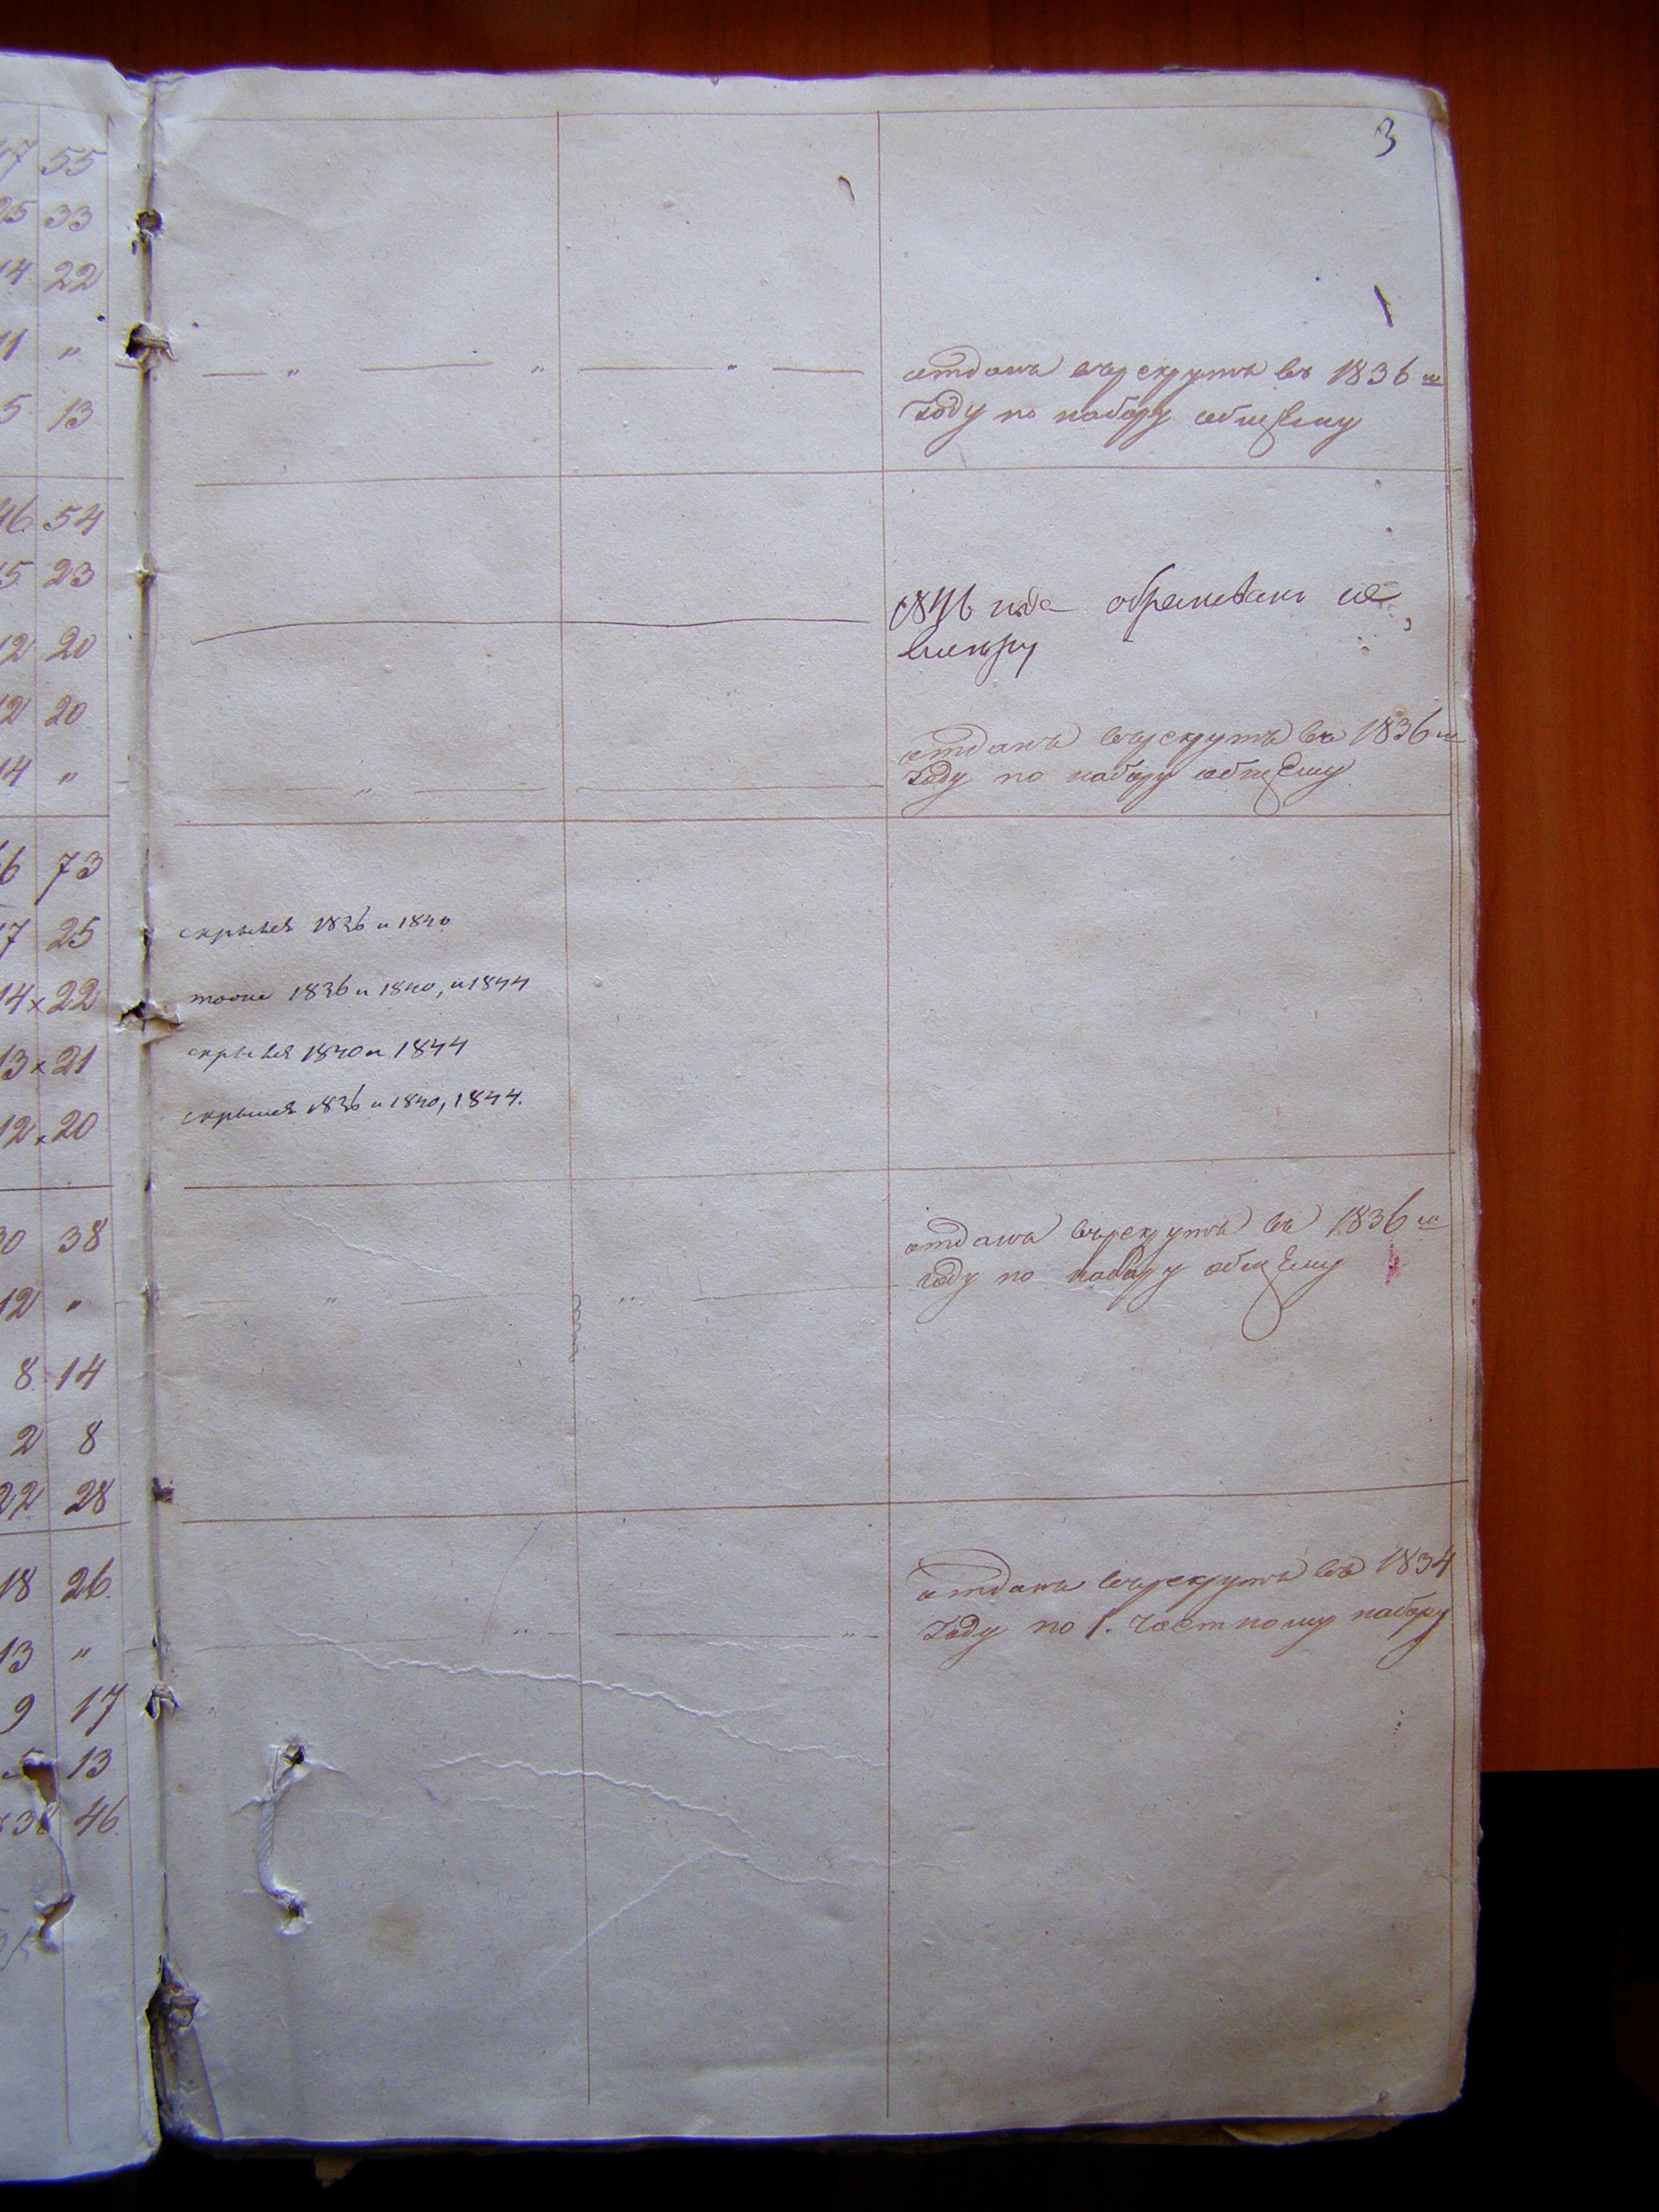 3
47 55
25 33
14 22
11 "
5 13
отданъ върекруты въ 1836 м
году по набору общему
46 54
15 23
12 20
12 20
14 "
1846 года
отданъ върекруты въ 1836 м
году по набору общему
66 73
17 25
14 x 22
13 x 21
12 x 20
скрылся 1836 и 1840
тоже 1836 и 1840, и 1844
скрылся 1840 и 1844
скрылся 1836 и 1840, 1844.
30 38
12 "
8 14
2 8
22 28
отданъ върекруты въ 1836 м
году по набору общему
18 26
13 "
9 17
5 13
38 46
отданъ върекруты въ 1834
году по 1. частному набору